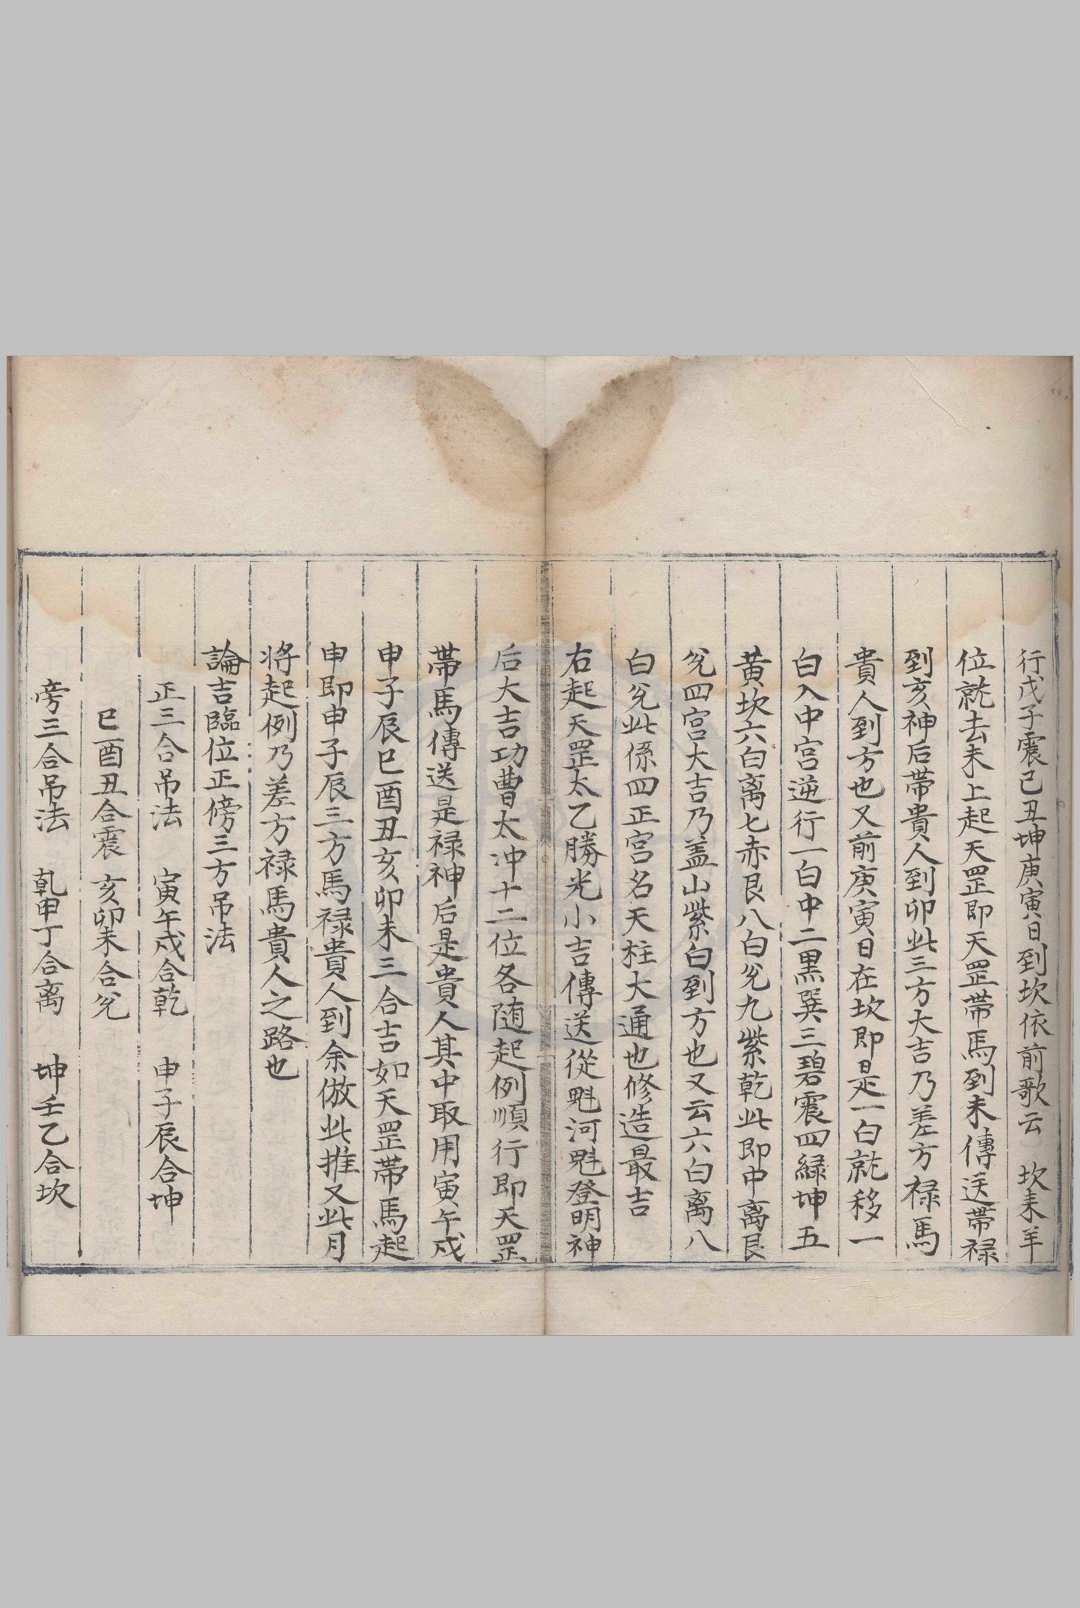 行戊子震己丑坤庚寅日到坎依前歌云　坎未羊
位就去未上起天罡即天罡帶馬到未傳送帶禄
到亥神后帶貴人到卯此三方大吉乃差方禄馬
貴人到方也又前庚寅日在坎即是一白就移一
白入中宫逆行一白中二黑巽三碧震四緑坤五
黄坎六白离七赤艮八白兊九紫乾此即中离艮
兊四宫大吉乃盖山紫白到方也又云六白离八
白兊此係四正宫名天柱大通也修造最吉
右起天罡太乙勝光小吉傳送從魁河魁登明神
后大吉功曹太冲十二位各随起例順行即天罡
帶馬傳送是禄神后是貴人其中取用寅午戍
申子辰巳酉丑亥卯未三合吉如天罡帶馬起
申即申子辰三方馬禄貴人到余倣此推又此月
将起例乃差方禄馬貴人之路也
論吉臨位正傍三方吊法
正三合吊法　寅午戍合乾　申子辰合坤
巳酉丑合震　亥卯未合兊
旁三合吊法　乹甲丁合离　坤壬乙合坎